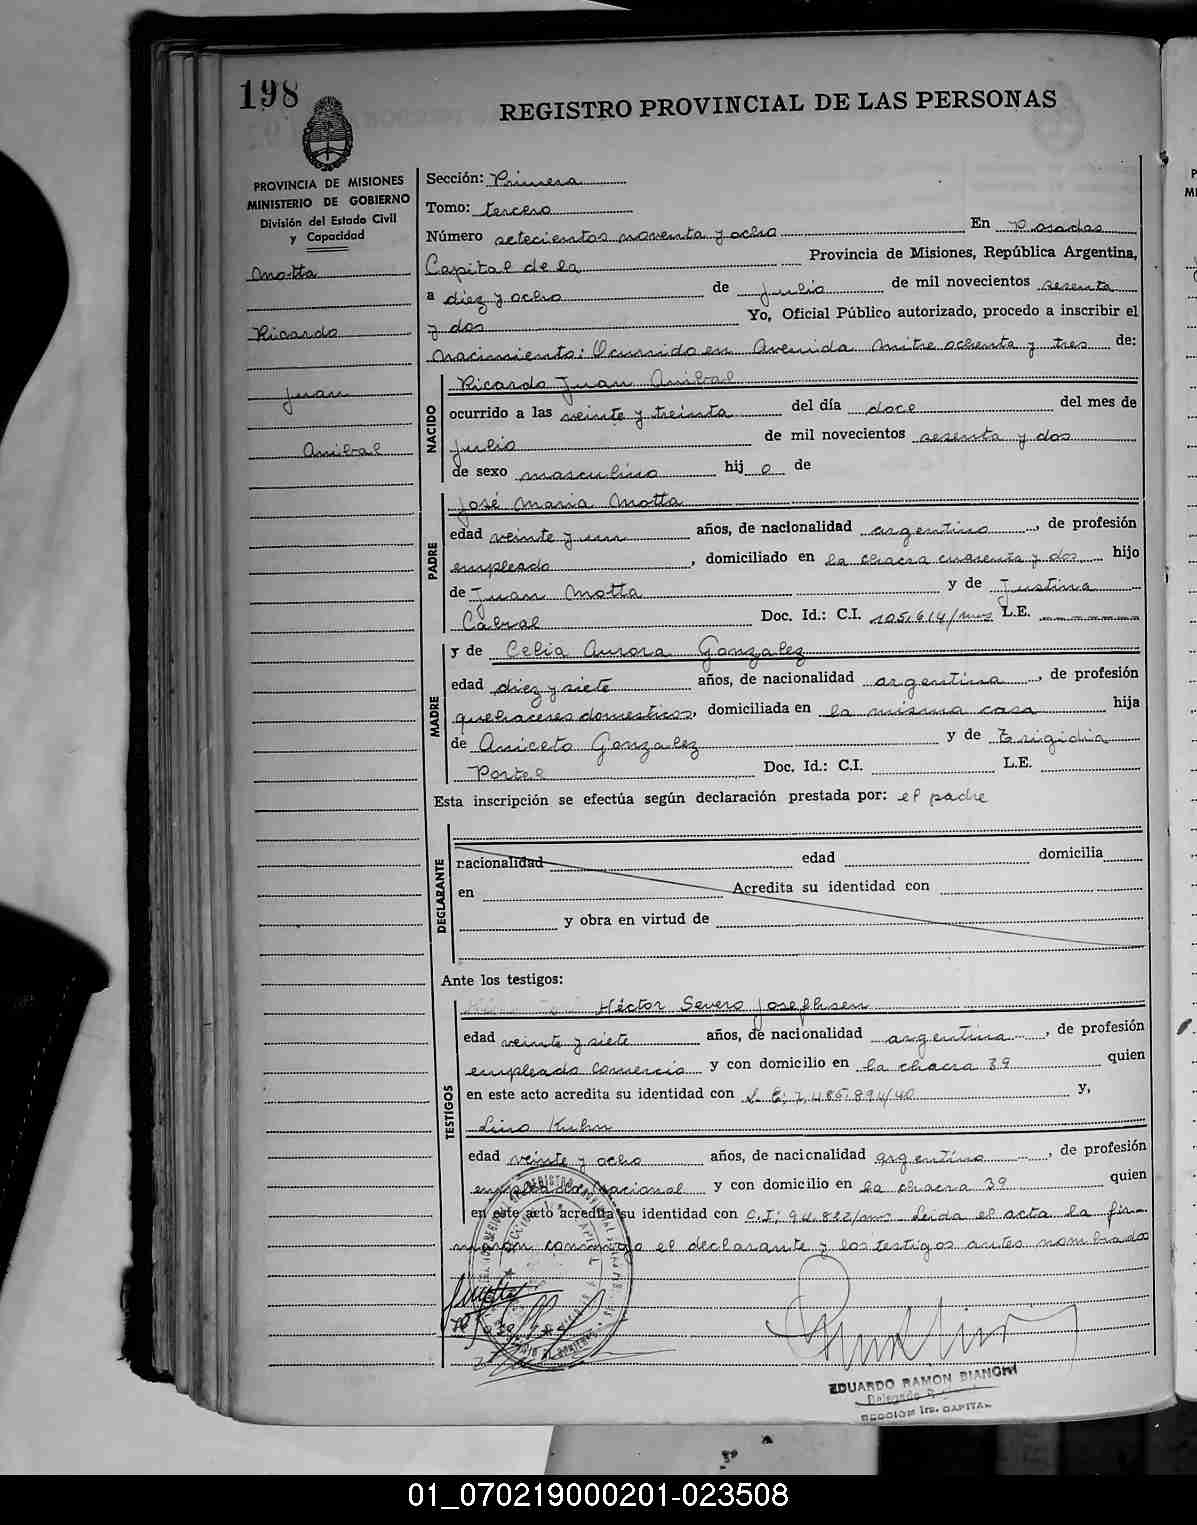 198
REGISTRO PROVINCIAL DE LAS PERSONAS
PROVINCIA DE MISIONES
MINISTERIO DE GOBIERNO
División del Estado Civil
y Capacidad
Motta
Ricardo
Juan
Anibal
Sección: Primera
Tomo: tercero
Número setecientos noventa y ocho En Posadas
Capital de la Provincia de Misiones, República Argentina,
a diez y ocho de Julio de mil novecientos sesenta
y dos Yo, Oficial Público autorizado, procedo a inscribir el
nacimiento: Ocurrido en Avenida Mitre ochenta y tres de:
NACIDO
Ricardo Juan Anibal
ocurrido a las veinte y treinta del día doce del mes de
Julio de mil novecientos sesenta y dos
de sexo masculino hij o de
PADRE
José Maria Motta
edad veinte y un años, de nacionalidad argentino, de profesión
empleado, domiciliado en la chacra cuarenta y dos hijo
de Juan Motta y de Justina
Cabral Doc. Id.: C.I. 105,614/mns L.E.
MADRE
y de Celia Aurora Gonzalez
edad diez y siete años, de nacionalidad argentina, de profesión
quehaceres domesticos, domiciliada en la misma casa hija
de Aniceto Gonzalez y de Brigidia
Portel Doc. Id.: C.I. L.E.
Esta inscripción se efectúa según declaración prestada por: el padre
DECLARANTE
nacionalidad edad domicilia
en Acredita su identidad con
y obra en virtud de
Ante los testigos:
TESTIGOS
Héctor Severo Josephsen
edad veinte y siete años, de nacionalidad argentina, de profesión
empleado comercio y con domicilio en la chacra 39 quien
en este acto acredita su identidad con L.E; 7,485.894/40 y,
Lino Kuhn
edad veinte y ocho años, de nacionalidad argentino, de profesión
empleado nacional y con domicilio en la chacra 39 quien
en este acto acredita su identidad con C,I; 94,822/mns Leida el acta la fir-
maron conmigo el declarante y los testigos antes nombrados
EDUARDO RAMON BIANCHI
SECCION 1ra. CAPITAL
01_070219000201-023508